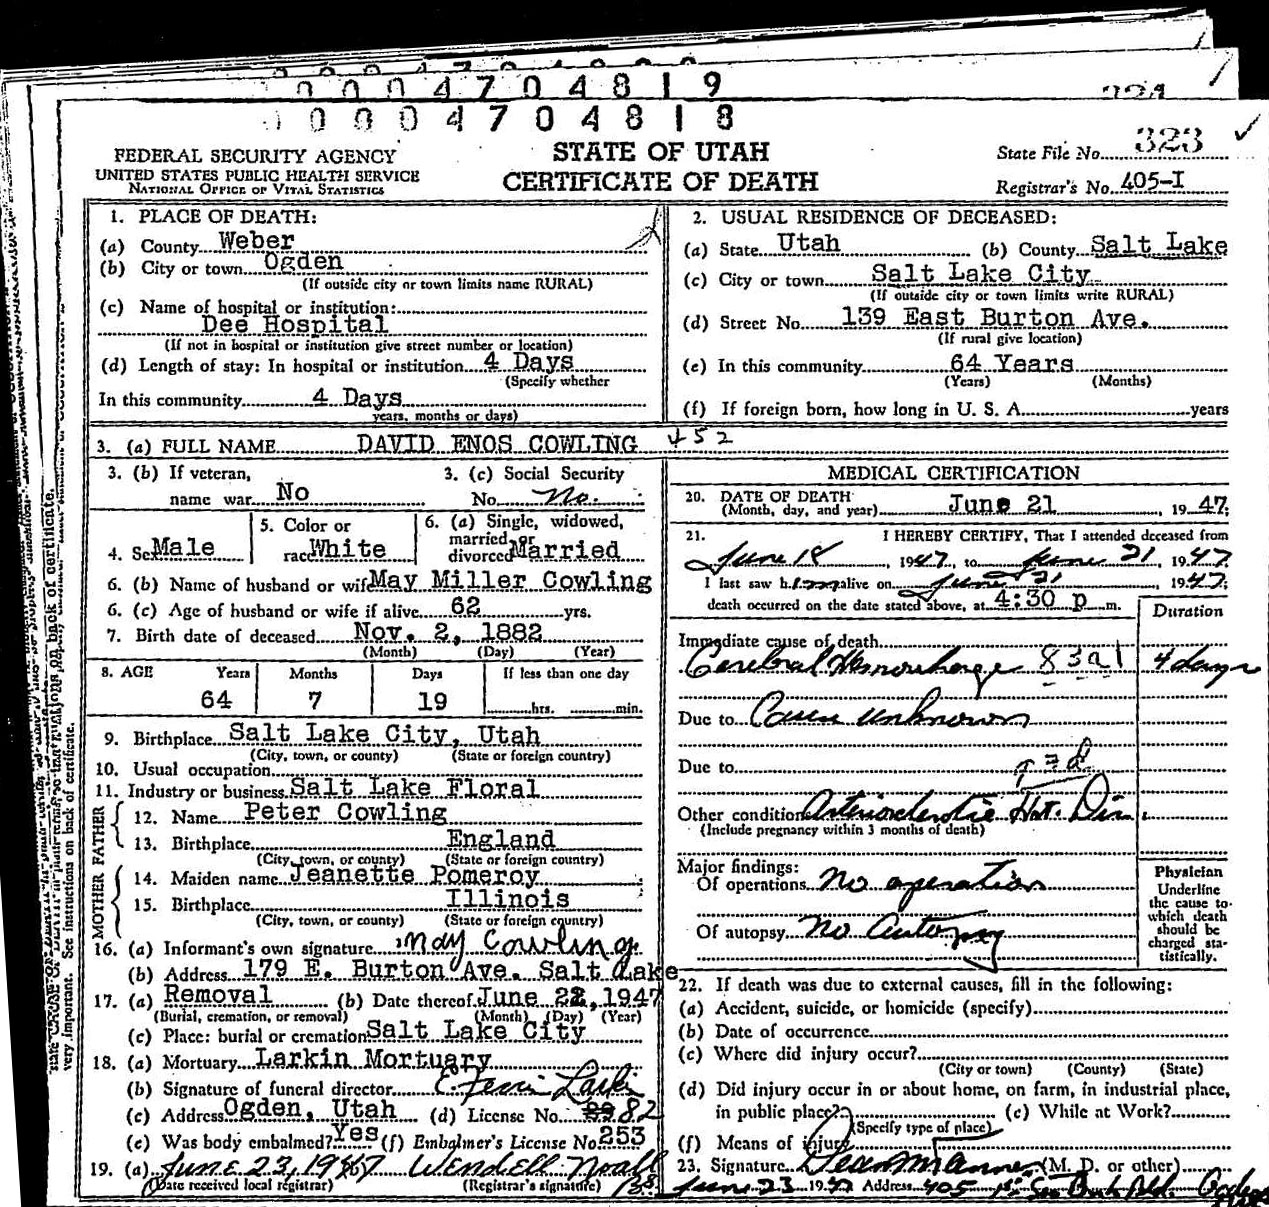 0 0 0 4 7 0 4 8 1 9
0 0 0 4 7 0 4 8 1 8
FEDERAL SECURITY AGENCY
UNITED STATES PUBLIC HEALTH SERVICE
NATIONAL OFFICE OF VITAL STATISTICS
STATE OF UTAH
CERTIFICATE OF DEATH
State File No. 323
Registrar's No. 405-I
1. PLACE OF DEATH:
(a) County Weber
(b) City or town Ogden
(If outside city or town limits name RURAL)
(c) Name of hospital or institution:
Dee Hospital
(If not in hospital or institution give street number or location)
(d) Length of stay: In hospital or institution 4 Days
(Specify whether
In this community 4 Days
years, months or days)
2. USUAL RESIDENCE OF DECEASED:
(a) State Utah (b) County Salt Lake
(c) City or town Salt Lake City
(If outside city or town limits write RURAL)
(d) Street No. 139 East Burton Ave.
(If rural give location)
(e) In this community 64 Years
(Years) (Months)
(f) If foreign born, how long in U. S. A. years
3. (a) FULL NAME DAVID ENOS COWLING 452
3. (b) If veteran,
name war No
3. (c) Social Security
No. No.
4. Sex Male
5. Color or
race White
6. (a) Single, widowed,
married or
divorced Married
6. (b) Name of husband or wife May Miller Cowling
6. (c) Age of husband or wife if alive 62 yrs.
7. Birth date of deceased Nov. 2, 1882
(Month) (Day) (Year)
8. AGE Years Months Days If less than one day
64 7 19 hrs. min.
9. Birthplace Salt Lake City, Utah
(City, town, or county) (State or foreign country)
10. Usual occupation
11. Industry or business Salt Lake Floral
FATHER
12. Name Peter Cowling
13. Birthplace England
(City, town, or county) (State or foreign country)
MOTHER
14. Maiden name Jeanette Pomeroy
15. Birthplace Illinois
(City, town, or county) (State or foreign country)
16. (a) Informant's own signature May Cowling
(b) Address 179 E. Burton Ave. Salt Lake
17. (a) Removal (b) Date thereof June 22, 1947
(Burial, cremation, or removal) (Month) (Day) (Year)
(c) Place: burial or cremation Salt Lake City
18. (a) Mortuary Larkin Mortuary
(b) Signature of funeral director Larkin
(c) Address Ogden, Utah (d) License No. 82
(e) Was body embalmed? Yes (f) Embalmer's License No. 253
19. (a) June 23, 1947 Wendell Noall
(Date received local registrar) (Registrar's signature)
MEDICAL CERTIFICATION
20. DATE OF DEATH
(Month, day, and year) June 21, 19 47
21. I HEREBY CERTIFY, That I attended deceased from
June 18, 1947, to June 21 1947
I last saw him alive on June 21 1947
death occurred on the date stated above, at 4:30 p m.
Duration
Immediate cause of death
Cerebral Hemorrhage 8321 4 days
Due to Cause unknown
Due to
Other conditions Arteriosclerotic Hrt. Dis.
(Include pregnancy within 3 months of death)
Major findings:
Of operations No operation
Of autopsy No Autopsy
Physician
Underline
the cause to
which death
should be
charged sta-
tistically.
22. If death was due to external causes, fill in the following:
(a) Accident, suicide, or homicide (specify)
(b) Date of occurrence
(c) Where did injury occur?
(City or town) (County) (State)
(d) Did injury occur in or about home, on farm, in industrial place,
in public place? (e) While at Work?
(Specify type of place)
(f) Means of injury
23. Signature (M. D. or other)
June 23 1947 Address 405
very important. See instructions on back of certificate.